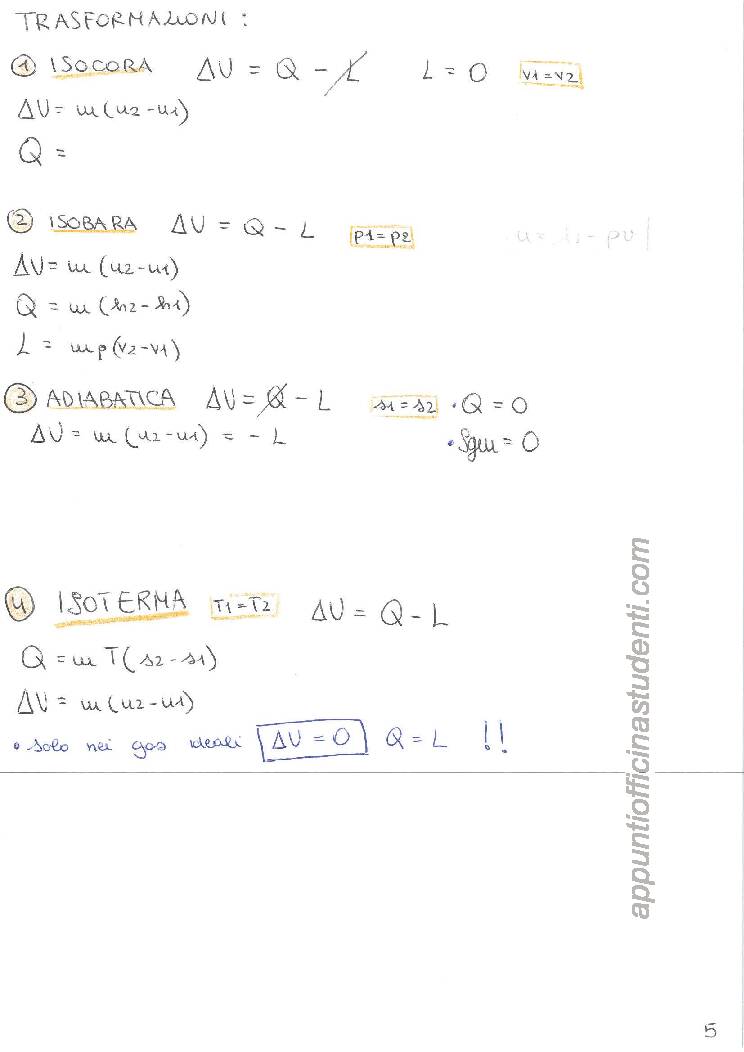 TRASFORMAZIONI :
① ISOCORA ΔU = Q - L L = 0 v1=v2
ΔU = m (u2-u1)
Q =
② ISOBARA ΔU = Q - L p1=p2
ΔU = m (u2-u1)
Q = m (h2-h1)
L = mp(v2-v1)
③ ADIABATICA ΔU = Q - L s1=s2 • Q = 0
ΔU = m (u2-u1) = - L • Sgen = 0
④ ISOTERMA T1=T2 ΔU = Q - L
Q = m T(s2-s1)
ΔU = m (u2-u1)
• solo nei gas ideali ΔU = 0 Q = L !!
appuntiofficinastudenti.com
5